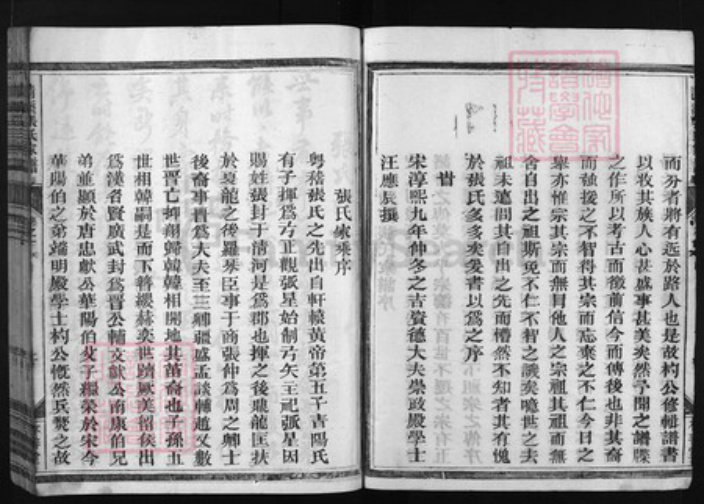 而分者將有返於路人也是故杓公修輯譜書
以收其族人心甚盛事甚美矣然予閱之譜牒
之作所以考古而徵前信今而傳後也非其畲
而強援之不智得其宗而忘棄之不仁今日之
舉亦惟宗其宗而無冒他人之宗祖其祖而無
舍自出之祖斯免不仁不智之譏矣噫世之去
祖未遠間其自出之先而懵然不知者其有愧
於張氏多多矣爰書以為之序
旹
宋淳熙九年仲冬之吉資德大夫崇政殿學士
汪應辰撰
張氏家乘序
粵稽張氏之先出自軒轅黃帝第五子青陽氏
有子揮為弓正觀張星始制弓矢主祀張星因
賜姓張封于清河是為郡也揮之後 龍匡扶
於夏龍之後羅琴臣事于商張仲為周之卿士
後畲事晋為大夫至三 疆盛孟談輔趙又數
世晋亡抑朔歸韓韓相開地其苗畲也子孫五
世相韓嗣是而下簪纓赫奕世躋厥美留侯出
為漢者賢廣武封為晋公輔文獻公南康伯兄
弟並顯於唐忠獻公華陽伯父子 榮於宋今
華陽伯之弟端明殿學士杓公慨然兵燹之故